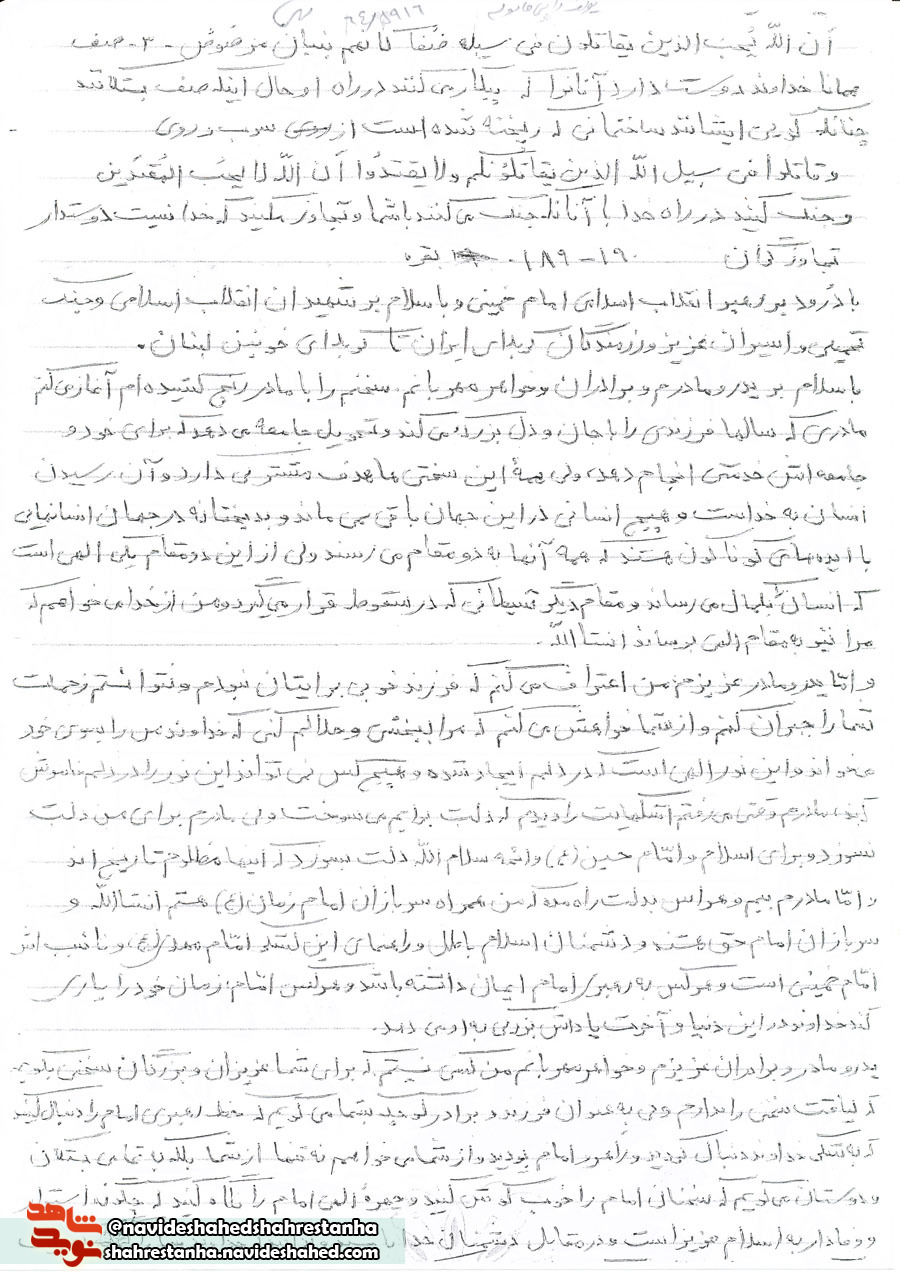 ۶۴/۵۹۱۶
اَن اللّه یُحبَ الذین یقاتلون فی سبیله صَفَا کانهم بنیان مرصوص - ۳ - صف
همانا خداوند دوست دارد آنانرا که پیکار می کنند در راه او حال اینکه صف بستگانند
چنانکه گویی ایشانند ساختمانی که ریخته شده است از سرب و روی
و قاتلوا فی سبیل اللّه الذین یقاتلونکم ولا یعتدُوا اَن اللّه لا یحب المُعتَدین
و جنگ کنید در راه خدا با آنانکه جنگ می کنند با شما و تجاوز مکنید که خدا نیست دوستدار
تجاوزگران ۱۹۰ - ۱۸۹ بقره
با دُرود بر رهبر انقلاب اسلامی امام خمینی و با سلام بر شهیدان انقلاب اسلامی و جنگ
تحمیلی و اسیران عزیز و رزمندگان کربلای ایران تا کربلای خونین لبنان.
با سلام بر پدر و مادرم و برادران و خواهر مهربانم. سخنم را با مادر رنج کشیده ام آغاز می کنم
مادری که سالها فرزندی را با جان و دل بزرگ می کند و تحویل جامعه می دهد که برای خود و
جامعه اش خدمتی انجام دهد، ولی همهٔ این سختی ها هدف مشترکی دارد و آن رسیدن
انسان به خداست و هیچ انسانی در این جهان باقی نمی ماند و بدبختانه در جهان انسانهایی
با ایده های گوناگون هستند که همه آنها به دو مقام می رسند ولی از این دو مقام یکی الهی است
که انسان بکمال می رساند و مقام دیگر شیطانی که در سقوط قرار می گیرد و من از خدا می خواهم که
مرا نیز به مقام الهی برساند انشااللّه.
و امّا پدر و مادر عزیزم من اعتراف می کنم که فرزند خوبی برایتان نبودم و نتوانستم زحمات
شما را جبران کنم و از شما خواهش می کنم که مرا ببخشی و حلالم کنی که خداوند من را بسوی خود
می خواند و این نور الهی است که در دلم ایجاد شده و هیچ کس نمی تواند این نور را در دلم خاموش
کند، مادرم وقتی می رفتم اشکهایت را دیدم که دلت برایم می سوخت ولی مادرم برای من دلت
نسوزد و برای اسلام و امّام حسین (ع) و ائمه سلام اللّه دلت بسوزد که آنها مظلوم تاریخ اند
و امّا مادرم بیم و هراس بدلت راه مده که من همراه سربازان امام زمان (ع) هستم انشااللّه و
سربازان امام حق هستند و دشمنان اسلام باطل و راهنمای این لشکر امّام مهدی (ع) و نائب اش
امّام خمینی است و هرکس به رهبری امام ایمان داشته باشد و هرکس امّام زمان خود را یاری
کند خداوند در این دنیا و آخرت پاداش بزرگی به او می دهد.
پدر و مادر و برادران عزیزم و خواهر مهربانم من کسی نیستم که برای شما عزیزان و بزرگان سخنی بگویم
که لیاقت سخنی را ندارم ولی به عنوان فرزند و برادر کوچک شما می گویم که خط رهبری امام را دنبال کنید
که به شکر خداوند دنبال کردید و راهرو امام بودید و از شما می خواهم نه تنها از شما بلکه تمامی بستگان
و دوستان می گویم که سخنان امام را خوب گوش کنید و چهرهٔ الهی امام را نگاه کنید که چگونه استوار
و وفادار به اسلام عزیز است و در مقابل دشمنان خدا
شاهد
نوید
@navideshahedshahrestanha
shahrestanha.navideshahed.com